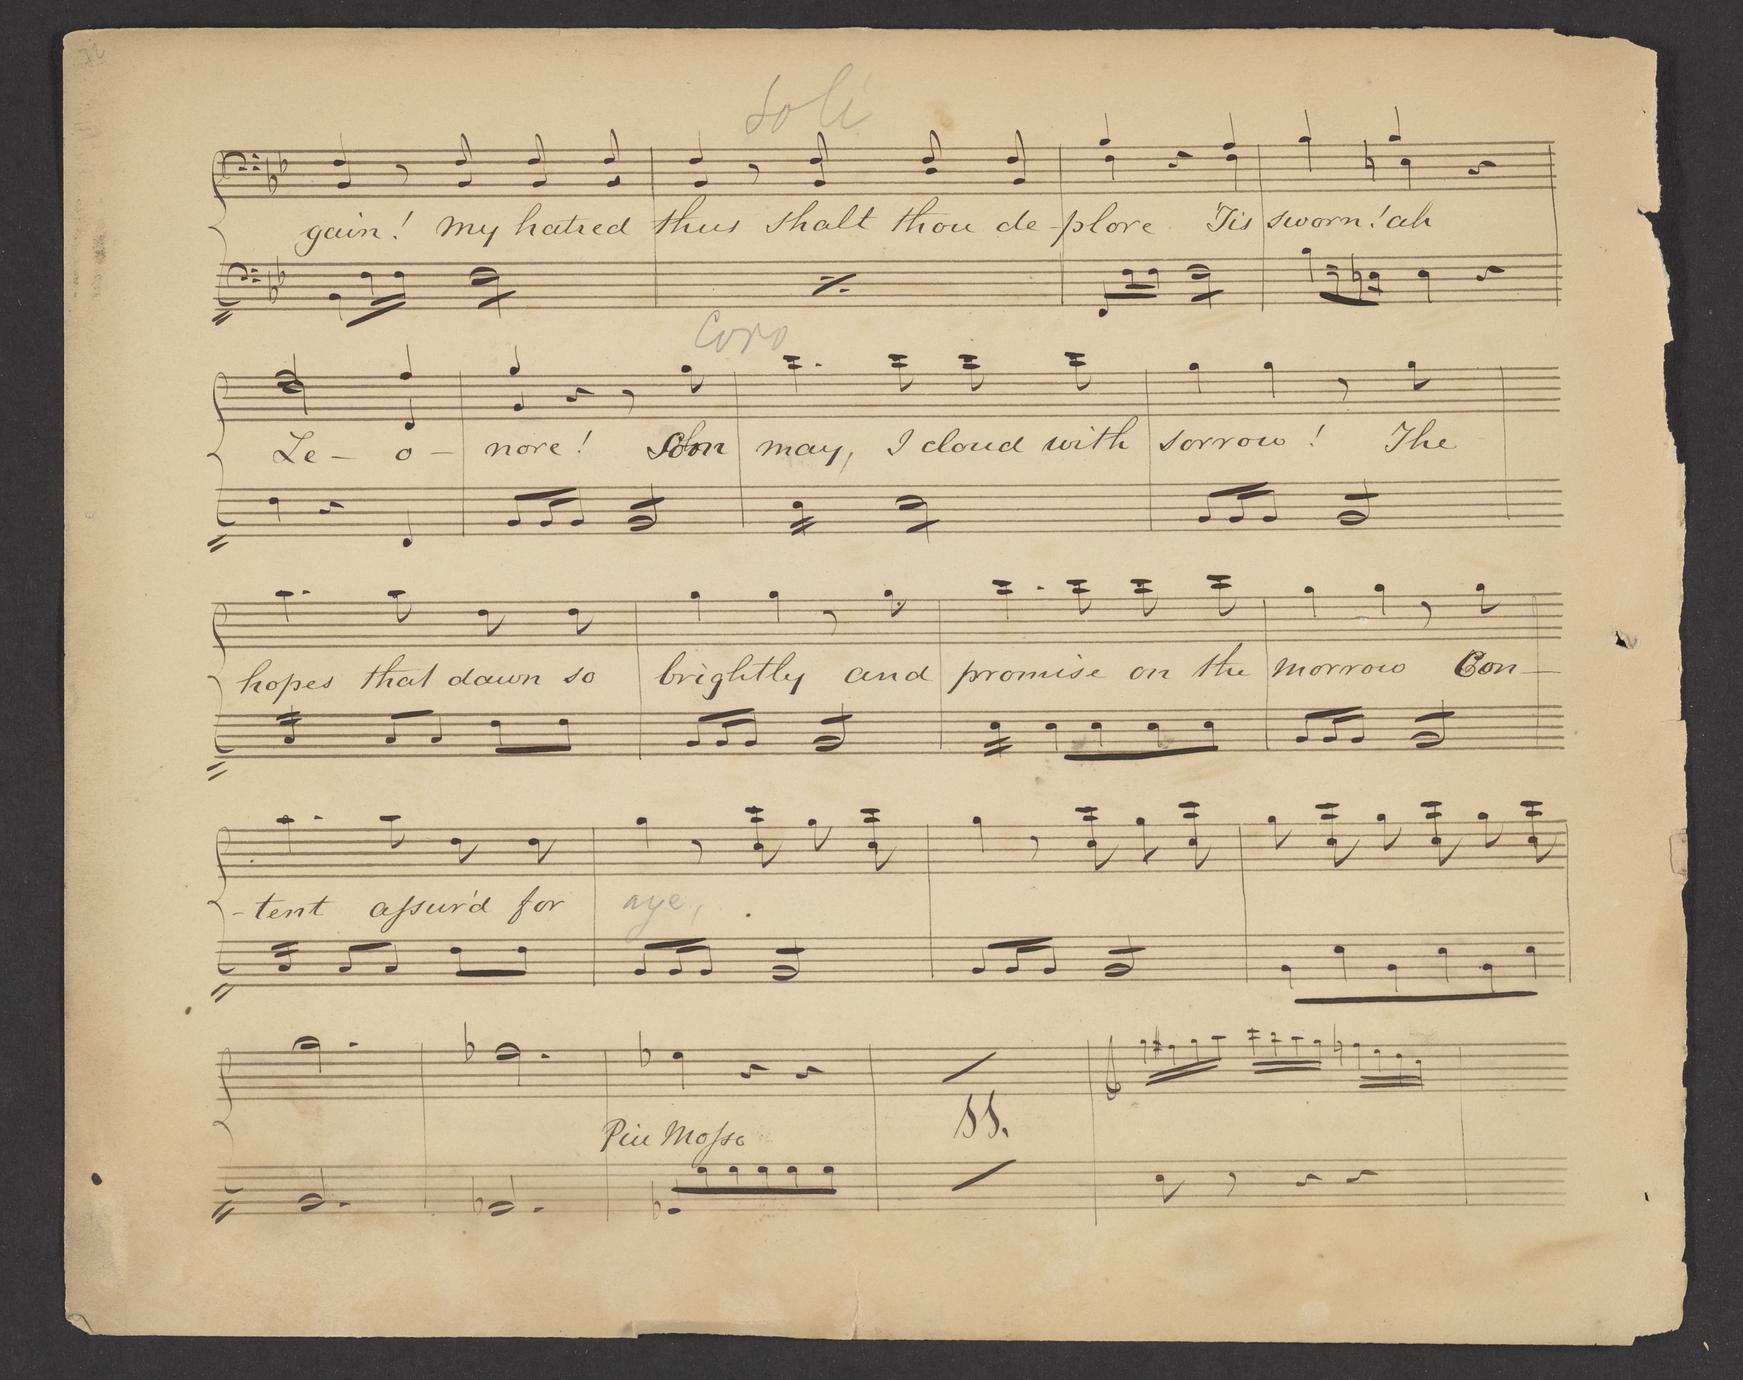 Soli
gain! My hatred thus shalt thou de-plore 'Tis sworn! ah
Coro
Le- o- nore! Soon may, I cloud with sorrow! The
hopes that dawn so brightly and promise on the morrow Con-
-tent assur'd for aye,
Piu Mosso